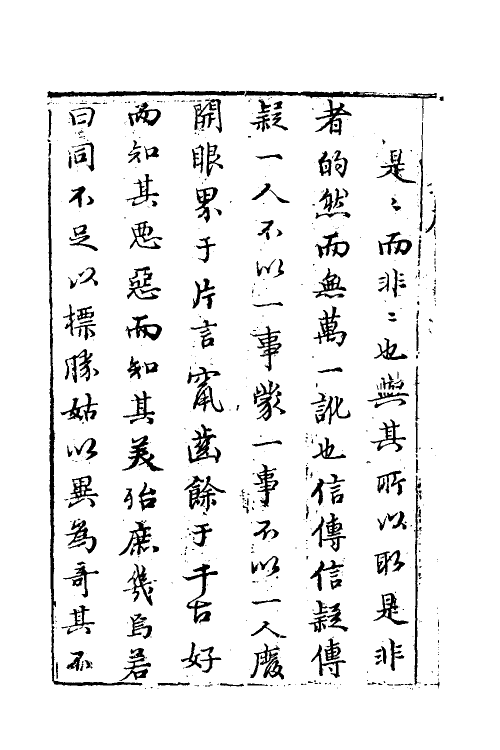 是〻而非〻也與其所以取是非
者的然而無萬一訛也信傳信疑傳
疑一人不以一事蒙一事不以一人廢
開眼界于片言寘齒餘于千古好
而知其惡惡而知其美殆庶幾焉若
曰同不足以標勝姑以異為奇其不